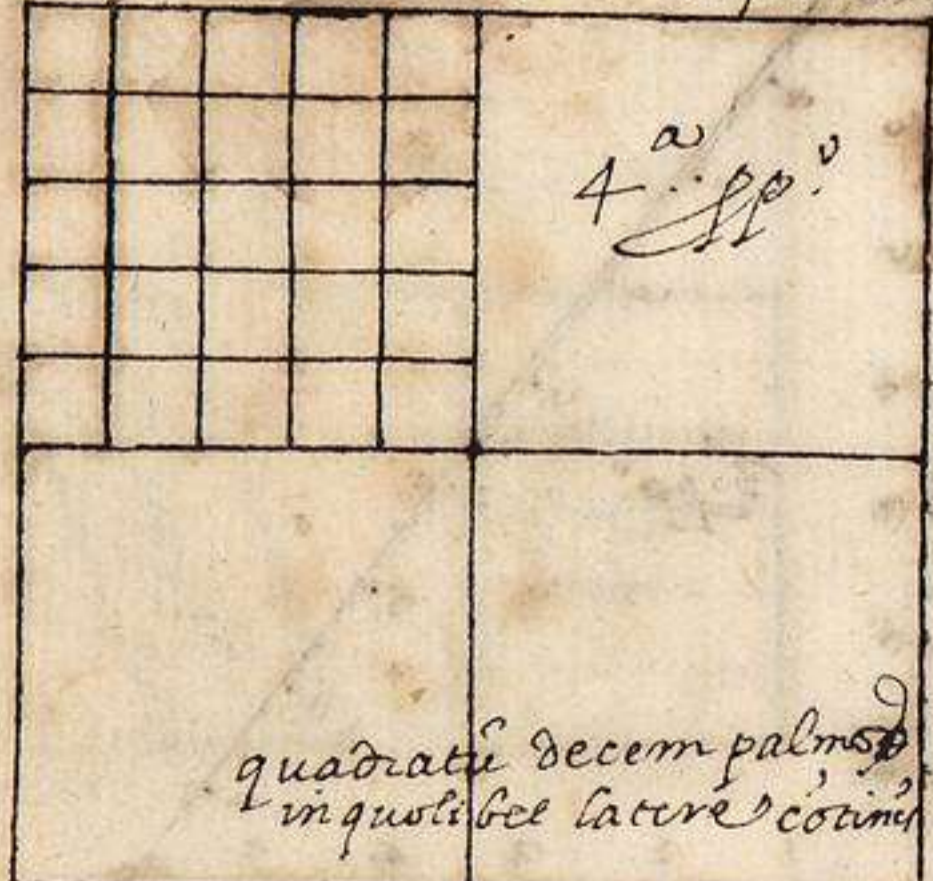 4.ª
quadratũ decem palmos
in quolibet latere cõtinẽs